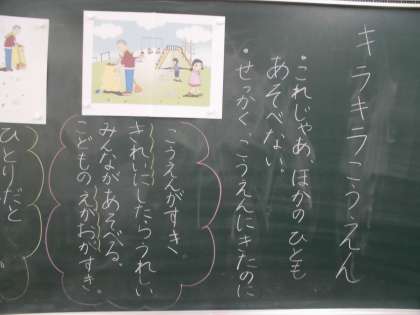 キラキラこうえん
・これじゃあ、ほかのひとも
あそべない。
・せっかく、こうえんにきたのに
こうえんがすき。
きれいにしたらうれしい
みんながあそべる。
こどものえがおがすき。
ひとりだと